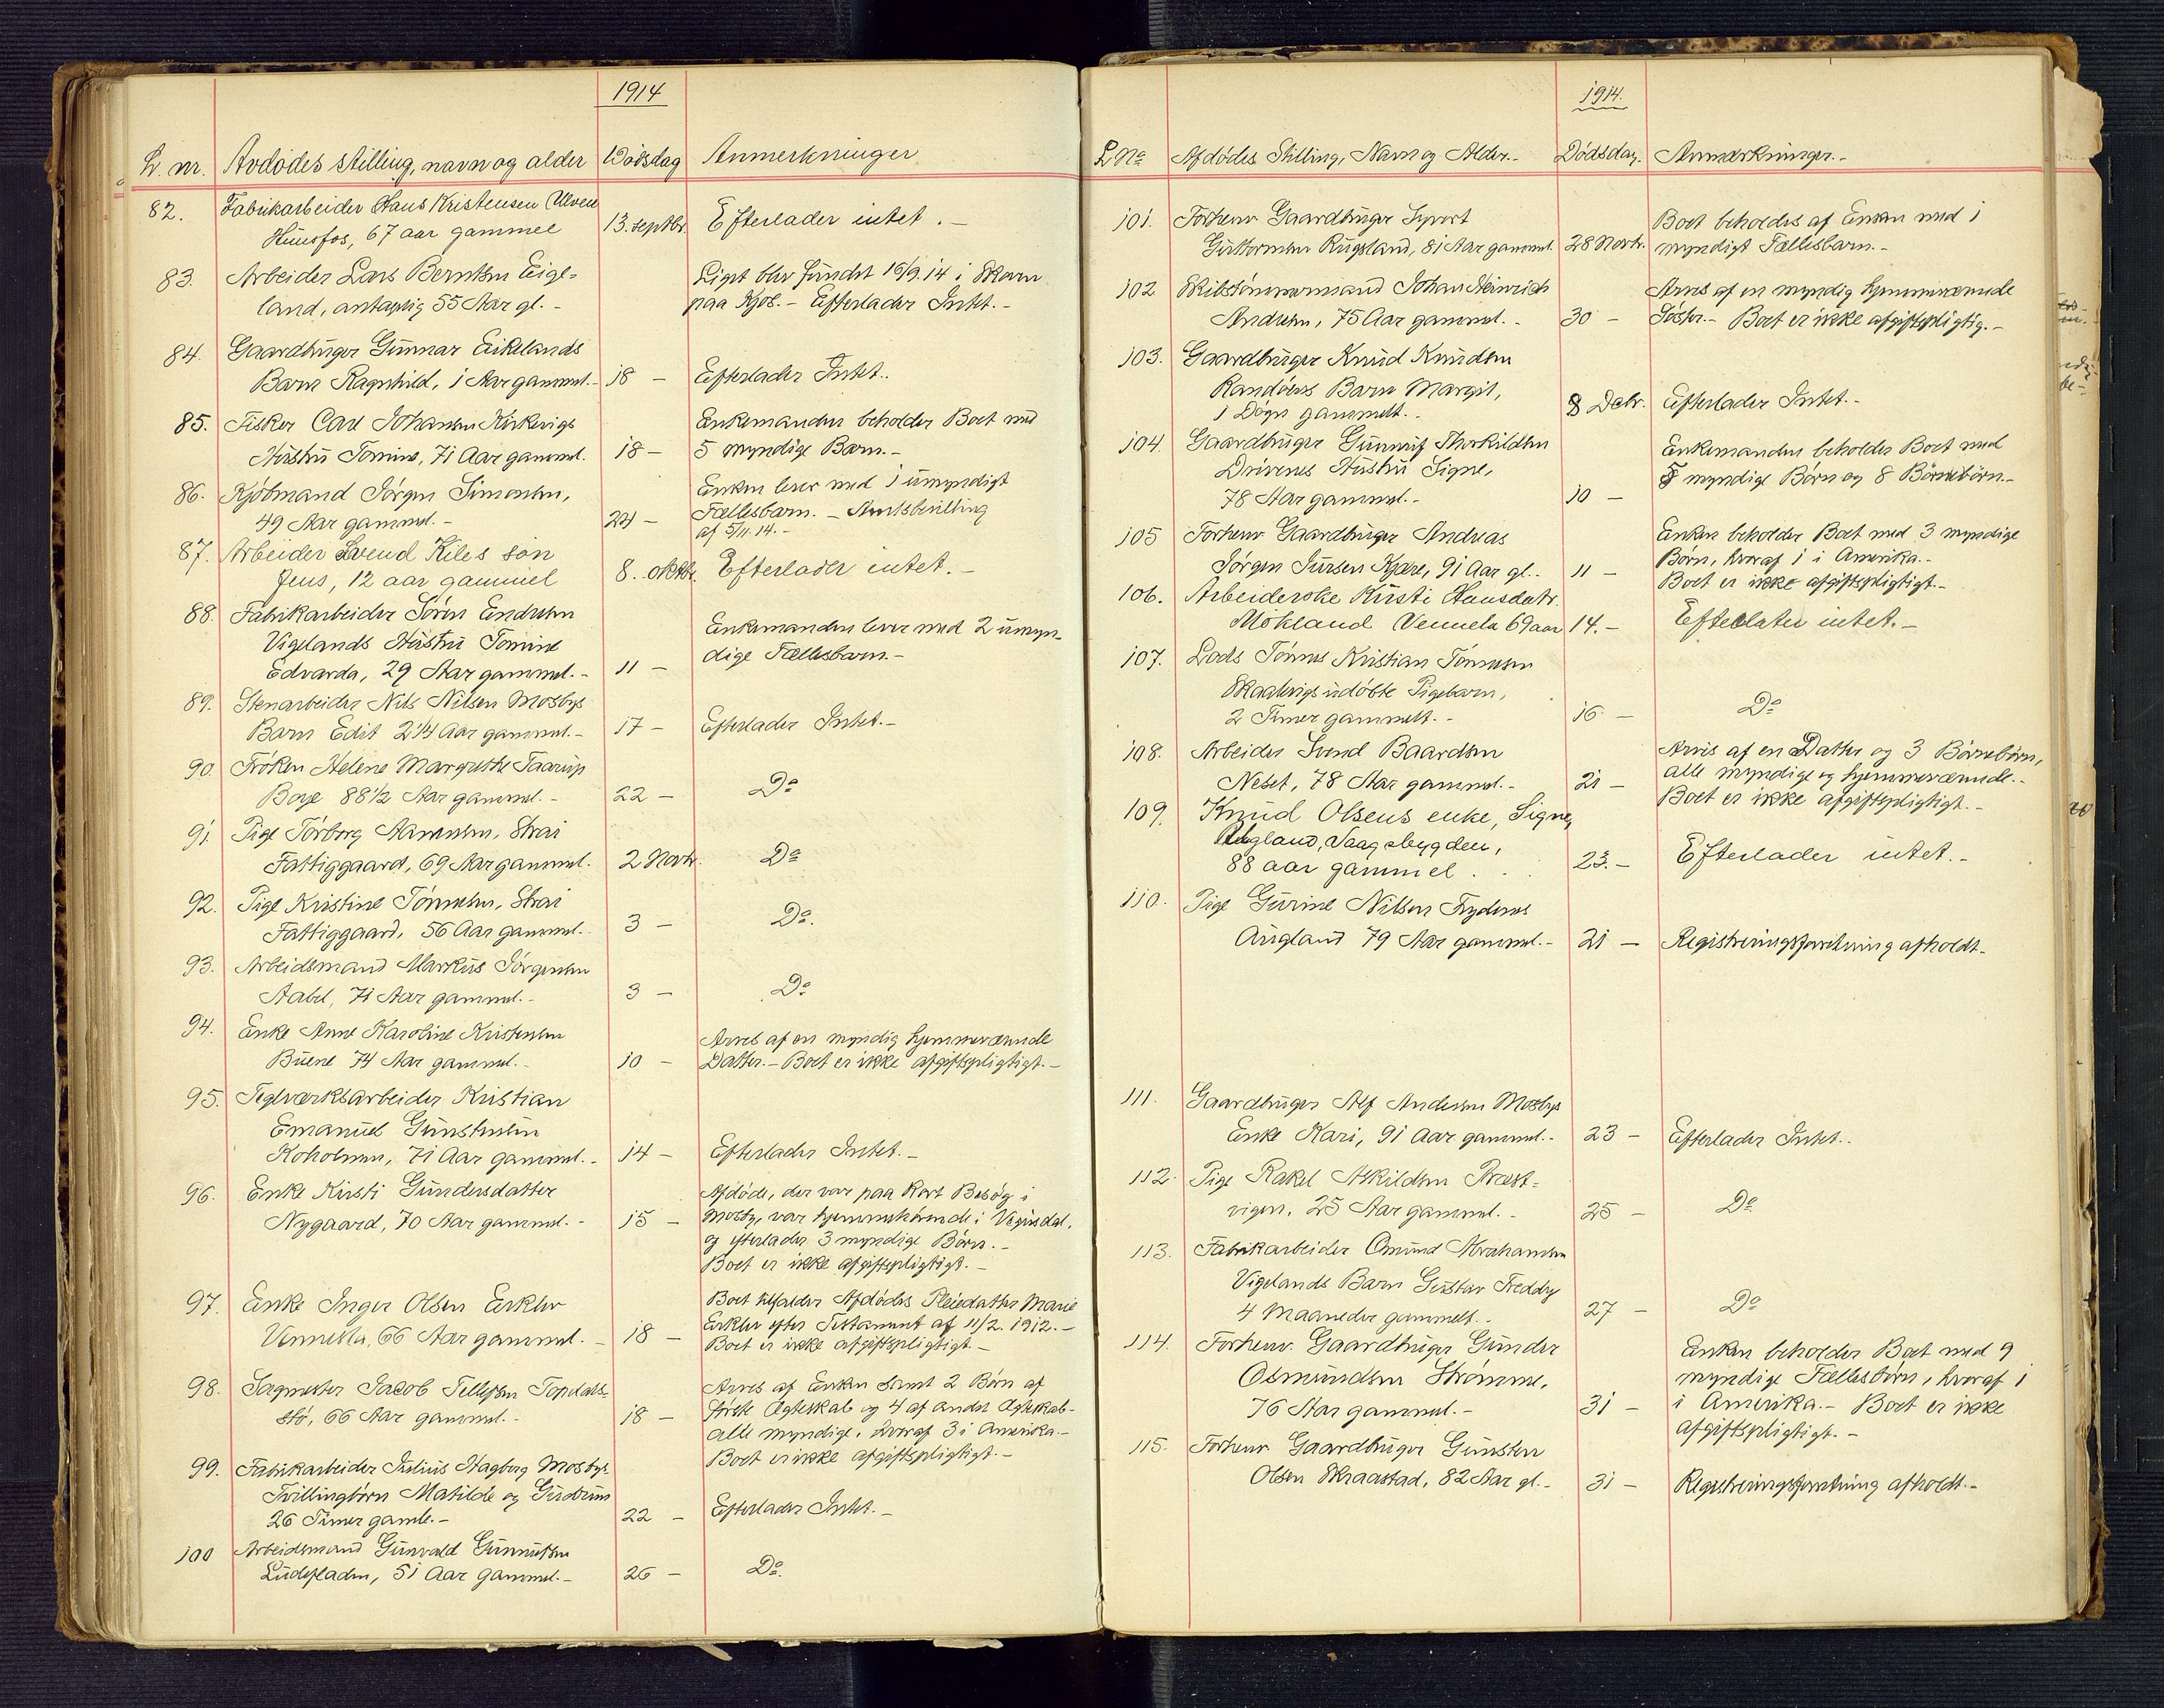 1914
L. nr. Avdödes stilling, navn og alder Dödsdag Anmerkninger
82. Fabrikarbeider Hans Kristensen Ulven
Hunsfos, 67 aar gammel 13. septbr. Efterlader intet. –
83. Arbeider Lars Berntsen Eige-
land, antagelig 55 Aar gl. –
Liget blev fundet 16/9.14 i Skoven
paa Kjos. – Efterlader Intet. –
84. Gaardbruger Gunnar Eikelands
Barn Ragnhild, 1 Aar gammel. – 18 – Efterlader Intet. –
85. Fisker Carl Johansen Kirkevigs
Hustru Tomine, 71 Aar gammel. 18 –
Enkemanden beholder Boet med
5 myndige Børn. –
86. Kjøbmand Jørgen Simonsen,
49 Aar gammel. – 24 –
Enken lever med 1 umyndigt
Fællesbarn. – Amtsbevilling
af 5/11.14. –
87. Arbeider Svend Kiles sön
Jens, 12 aar gammel 8. oktbr. Efterlader intet. –
88. Fabrikarbeider Søren Endresen
Vigelands Hustru Tomine
Edvarda, 29 Aar gammel. – 11 –
Enkemanden lever med 2 umyn-
dige Fællesbørn. –
89. Stenarbeider Nils Nilsen Mosbys
Barn Edit 2 1/4 Aar gammel. – 17 – Efterlader Intet. –
90. Frøken Helene Margrethe Taarup
Boye 88 1/2 Aar gammel. – 22 – Do
91. Pige Torborg Aamunsen, Strai
Fattiggaard, 69 Aar gammel. 2 Novbr. Do
92. Pige Kristine Tønnesen, Strai
Fattiggaard, 56 Aar gammel. – 3 – Do.
93. Arbeidsmand Markus Jørgensen
Aabel, 71 Aar gammel. – 3 – Do
94. Enke Anne Karoline Kristensen
Buene 74 Aar gammel. – 10 –
Arves af en myndig hjemmeværende
Datter. – Boet er ikke afgiftspligtigt. –
95. Teglværksarbeider Kristian
Emanuel Gunstensen
Koholmen, 71 Aar gammel. – 14 – Efterlader Intet. –
96. Enke Kirsti Gundersdatter
Nygaard, 70 Aar gammel. – 15 –
Afdøde, der var paa kort Besøg i
Mosby, var hjemmehørende i Vegusdal,
og efterlader 3 myndige Børn. –
Boet er ikke afgiftspligtigt. –
97. Enke Inger Olsen Eikler
Vennesla, 66 Aar gammel. – 18 –
Boet tilfalder Afdødes Pleiedatter Marie
Eikler efter Testament af 11/2. 1912. –
Boet er ikke afgiftspligtigt. –
98. Sagmester Jacob Tellefsen Topdals-
, 66 Aar gammel. – 18 –
Arves af Enken samt 2 Børn af
første Ægteskab og 4 af andet Ægteskab –
alle myndige, hvoraf 3 i Amerika. –
Boet er ikke afgiftspligtigt. –
99. Fabrikarbeider Julius Hagberg Mosbys
Tvillingbørn Matilde og Gudrun
26 Timer gamle. – 22 – Efterlader Intet. –
100 Arbeidsmand Gunvald Gunnufsen
, 51 Aar gammel. – 26 – Do.
1914.
L No Afdødes Stilling, Navn og Alder. – Dødsdag. Anmærkninger. –
101. Forhenv Gaardbruger Syvert
Guttormsen Rugsland, 81 Aar gammel. 28 Novbr.
Boet beholdes af Enken med 1
myndigt Fællesbarn. –
102 Skibstømmermand Johan Heinrich
Andresen, 75 Aar gammel. – 30 –
Arves af en myndig hjemmeværende
Søster. – Boet er ikke afgiftspligtig. –
103. Gaardbruger Knud Knudsen
Randøens Barn Margit,
1 Døgn gammelt. – 8 Debr. Efterlader Intet. –
104. Gaardbruger Gunnuf Thorkildsen
Drivenes Hustru Signe,
78 Aar gammel. – 10 –
Enkemanden beholder Boet med
myndige Børn og 8 Børnebørn. –
105 Forhenv Gaardbruger Andreas
Jørgen Jursen Kjære, 91 Aar gl. – 11 –
Enken beholder Boet med 3 myndige
Børn, hvoraf 1 i Amerika. –
Boet er ikke afgiftspligtigt. –
106. Arbeiderske Kirsti Hansdatr.
Mökland Vennesla 69 aar 14. – Efterlater intet. –
107. Lods Tønnes Kristian Tønnesen
Skaalevigs udøbte Pigebarn,
2 Timer gammelt. – 16. – Do
108. Arbeider Svend Baardsen
Neset, 78 Aar gammel. – 21 –
Arves af en Datter og 3 Børnebørn,
alle myndige og hjemmeværende. –
Boet er ikke afgiftspligtigt. –
109. Knud Olsens enke, Signe,
Augland, Vaagsbygden,
88 aar gammel. 23. – Efterlader intet. –
110. Pige Gurine Nilsen
Augland 79 Aar gammel. – 21 – Registreringsforretning afholdt. –
111. Gaardbruger Alf Andersen Mosbys
Enke Kari, 91 Aar gammel. – 23 – Efterlader Intet. –
112. Pige Rakel Askildsen Præst-
vigen, 25 Aar gammel. – 25 – Do
113. Fabrikarbeider Omund Abrahamsen
Vigelands Barn Gustav Freddy
4 Maaneder gammelt. – 27 – Do
114. Forhenv. Gaardbruger Gunder
Osmundsen Strømme,
76 Aar gammel. – 31 –
Enken beholder Boet med 9
myndige Fællesbørn, hvoraf 1
i Amerika. – Boet er ikke
afgiftspligtigt. –
115. Forhenv Gaardbruger Gunsten
Olsen Skraastad, 82 Aar gl. – 31 – Registreringsforretning afholdt. –